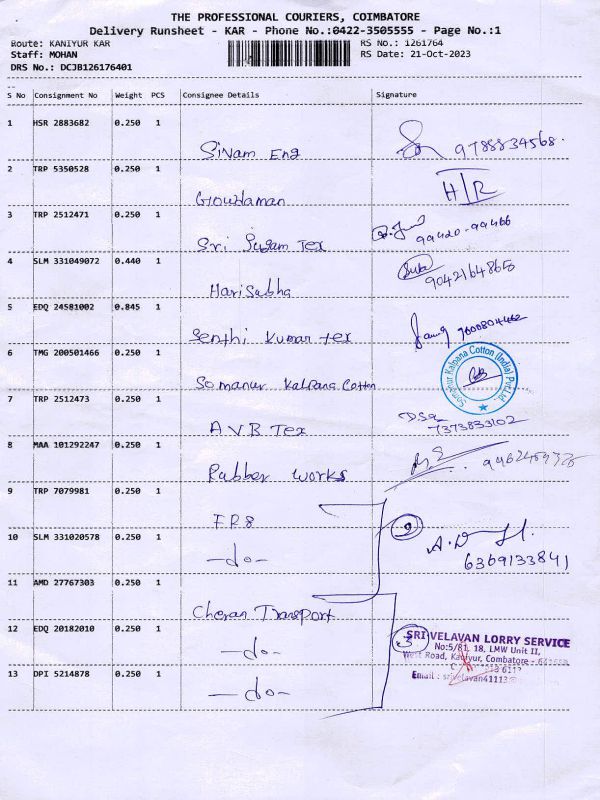 THE PROFESSIONAL COURIERS, COIMBATORE
Delivery Runsheet - KAR - Phone No.:0422-3505555 - Page No.:1
Route: KANIYUR KAR
RS No.: 1261764
Staff: MOHAN
RS Date: 21-Oct-2023
DRS No.: DCJB126176401
S No Consignment No Weight PCS Consignee Details Signature
1 HSR 2883682 0.250 1
Sinam Eng 9788834568.
2 TRP 5350528 0.250 1
Gowthaman H/R
3 TRP 2512471 0.250 1
Sri Sugam Tex 99420-99466
4 SLM 331049072 0.440 1
Hari Subha Suba 9042164865
5 EDQ 24581002 0.845 1
Senthi Kumar tex
6 TMG 200501466 0.250 1
Somanur Kalpana Cotton
Somanur Kalpana Cotton (India) Pvt.Ltd.
7 TRP 2512473 0.250 1
A.V.B Tex 7373833102
8 MAA 101292247 0.250 1
Rubber works
9 TRP 7079981 0.250 1
FR8 2
10 SLM 331020578 0.250 1
-do- 6369133841
11 AMD 27767303 0.250 1
Cheran Transport
12 EDQ 20182010 0.250 1
-do- 3
SRI VELAVAN LORRY SERVICE
No:5/81, 18, LMW Unit II,
West Road, Kaniyur, Combatore -
13 DPI 5214878 0.250 1
-do-
Email : srivelavan41113